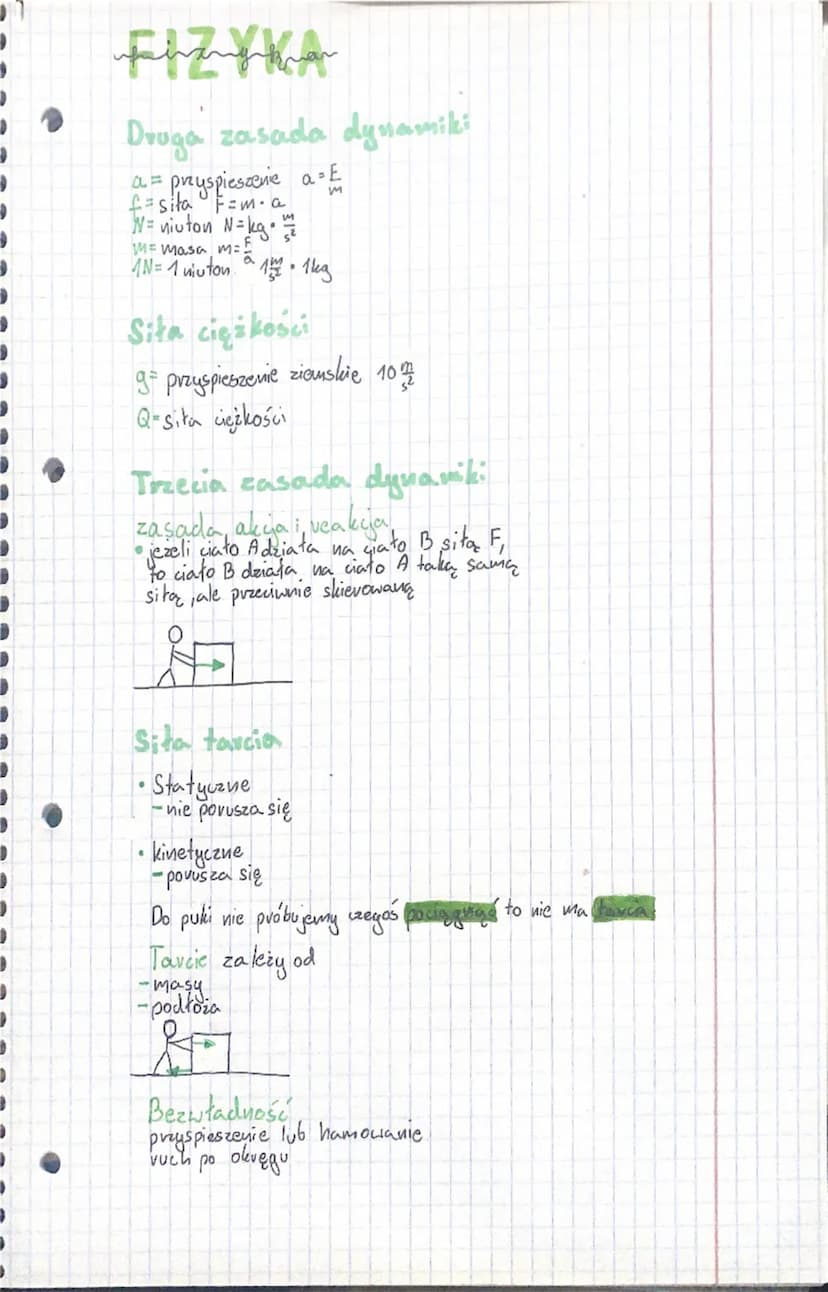 FIZYKA
fizyka
Druga zasada dynamiki
a= przyspieszenie a=F/m
f=siła F=m·a
N= niuton N=kg·m/s²
m=masa m=F/a
1N=1niuton 1m/s²·1kg
Siła ciężkości
g= przyspieszenie ziemskie 10 m/s²
Q=siła ciężkości
Trzecia zasada dynamiki
zasada akcja i reakcja
• jeżeli ciało A działa na ciało B siłą F,
to ciało B działa na ciało A taką samą
siłą, ale przeciwnie skierowaną
Siła tarcia
• Statyczne
- nie porusza się
• kinetyczne
- porusza się
Do puki nie próbujemy czegoś pociągnąć to nie ma tarcia
Tarcie zależy od
- masy
- podłoża
Bezwładność
przyspieszenie lub hamowanie
ruch po okręgu